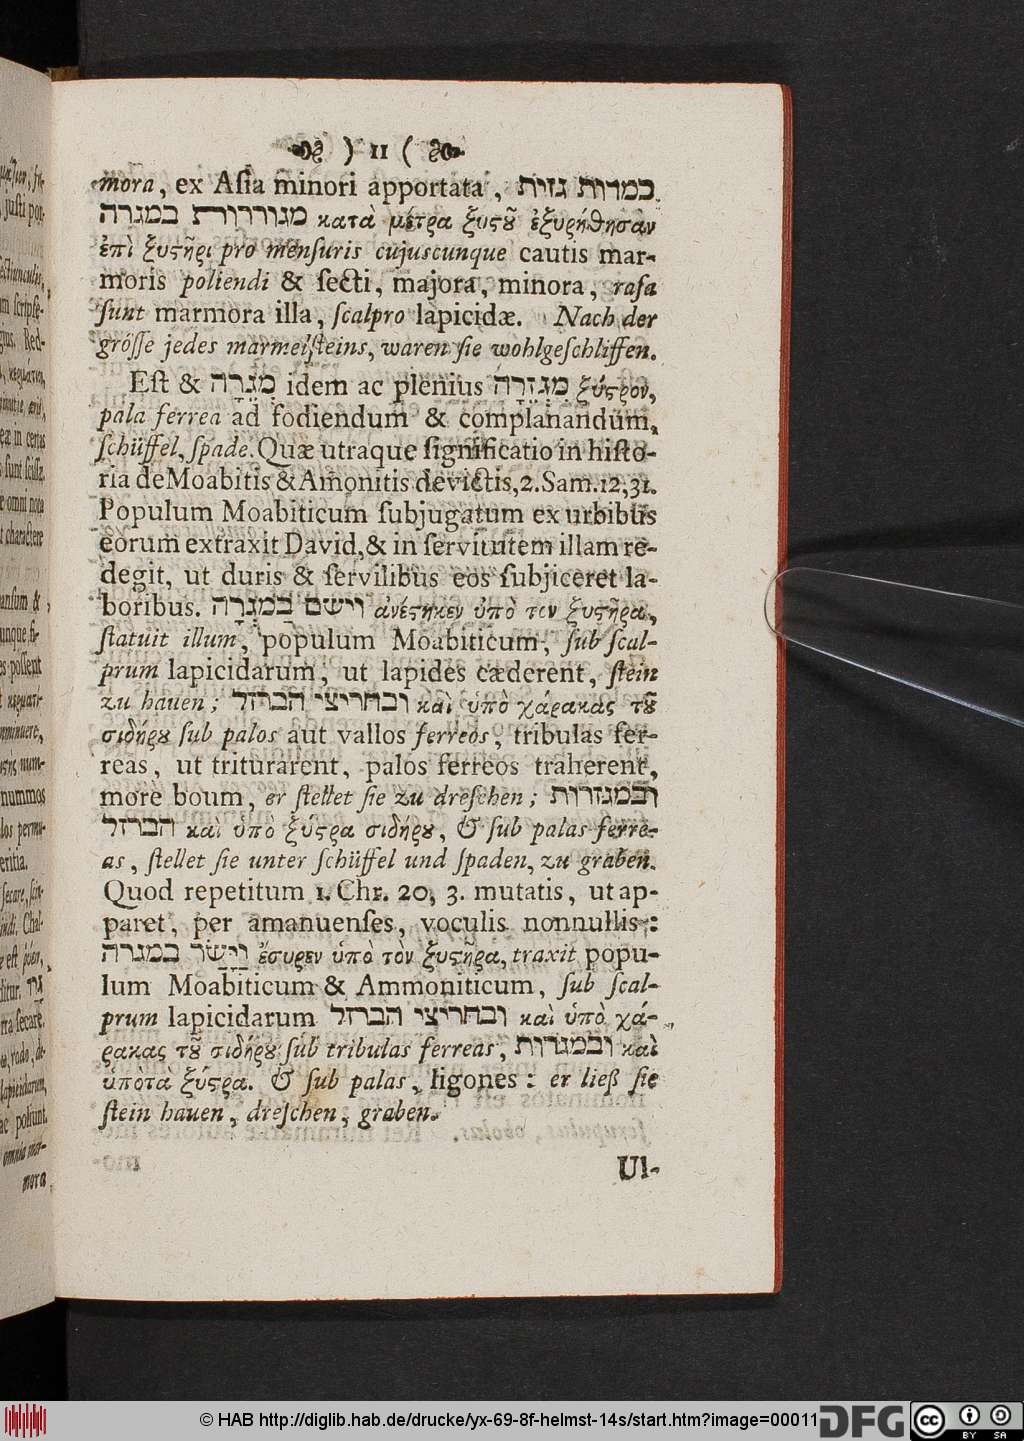 ) 11 (
mora, ex Aſia minori apportata, כמדות גזית
מגוררות במגרה κατὰ μέτρα ξυςȣ͂ ἐξυρήθησαν
ἐπὶ ξυςῆρι pro menſuris cujuscunque cautis mar-
moris poliendi & ſecti, majora, minora, raſa
ſunt marmora illa, ſcalpro lapicidæ. Nach der
gröſſe jedes marmelſteins, waren ſie wohlgeſchliffen.
Eſt & מְגֵרָה idem ac plenius מִגְזֵרָה ξύςρον,
pala ferrea ad fodiendum & complanandum,
ſchüffel, ſpade. Quæ utraque ſignificatio in hiſto-
ria de Moabitis & Amonitis devictis, 2. Sam. 12, 31.
Populum Moabiticum ſubjugatum ex urbibus
eorum extraxit David, & in ſervitutem illam re-
degit, ut duris & ſervilibus eos ſubjiceret la-
boribus. וישם בַמְגֵרָה ἀνέςηκεν ὑπὸ τὸν ξυςῆρα,
ſtatuit illum, populum Moabiticum, ſub ſcal-
prum lapicidarum, ut lapides cæderent, ſtein
zu hauen; ובחריצי הברזל καὶ ὑπὸ χάρακας τȣ͂
σιδήρȣ ſub palos aut vallos ferreos, tribulas fer-
reas, ut triturarent, palos ferreos traherent,
more boum, er ſtellet ſie zu dreſchen; ובמגזרות
הברזל καὶ ὑπὸ ξύςρα σιδήρȣ, & ſub palas ferre-
as, ſtellet ſie unter ſchüffel und ſpaden, zu graben.
Quod repetitum 1. Chr. 20, 3. mutatis, ut ap-
paret, per amanuenſes, voculis nonnullis:
וַיָּשַׂר במגרה ἔσυρεν ὑπὸ τὸν ξυςῆρα, traxit popu-
lum Moabiticum & Ammoniticum, ſub ſcal-
prum lapicidarum ובחריצי הברזל καὶ ὑπὸ χά-
ρακας τȣ͂ σιδήρȣ ſub tribulas ferreas, ובמגרות καὶ
ὑπὸ τὰ ξύςρα. & ſub palas, ligones: er ließ ſie
ſtein hauen, dreſchen, graben.
Ul-
© HAB http://diglib.hab.de/drucke/yx-69-8f-helmst-14s/start.htm?image=00011
DFG
cc BY SA